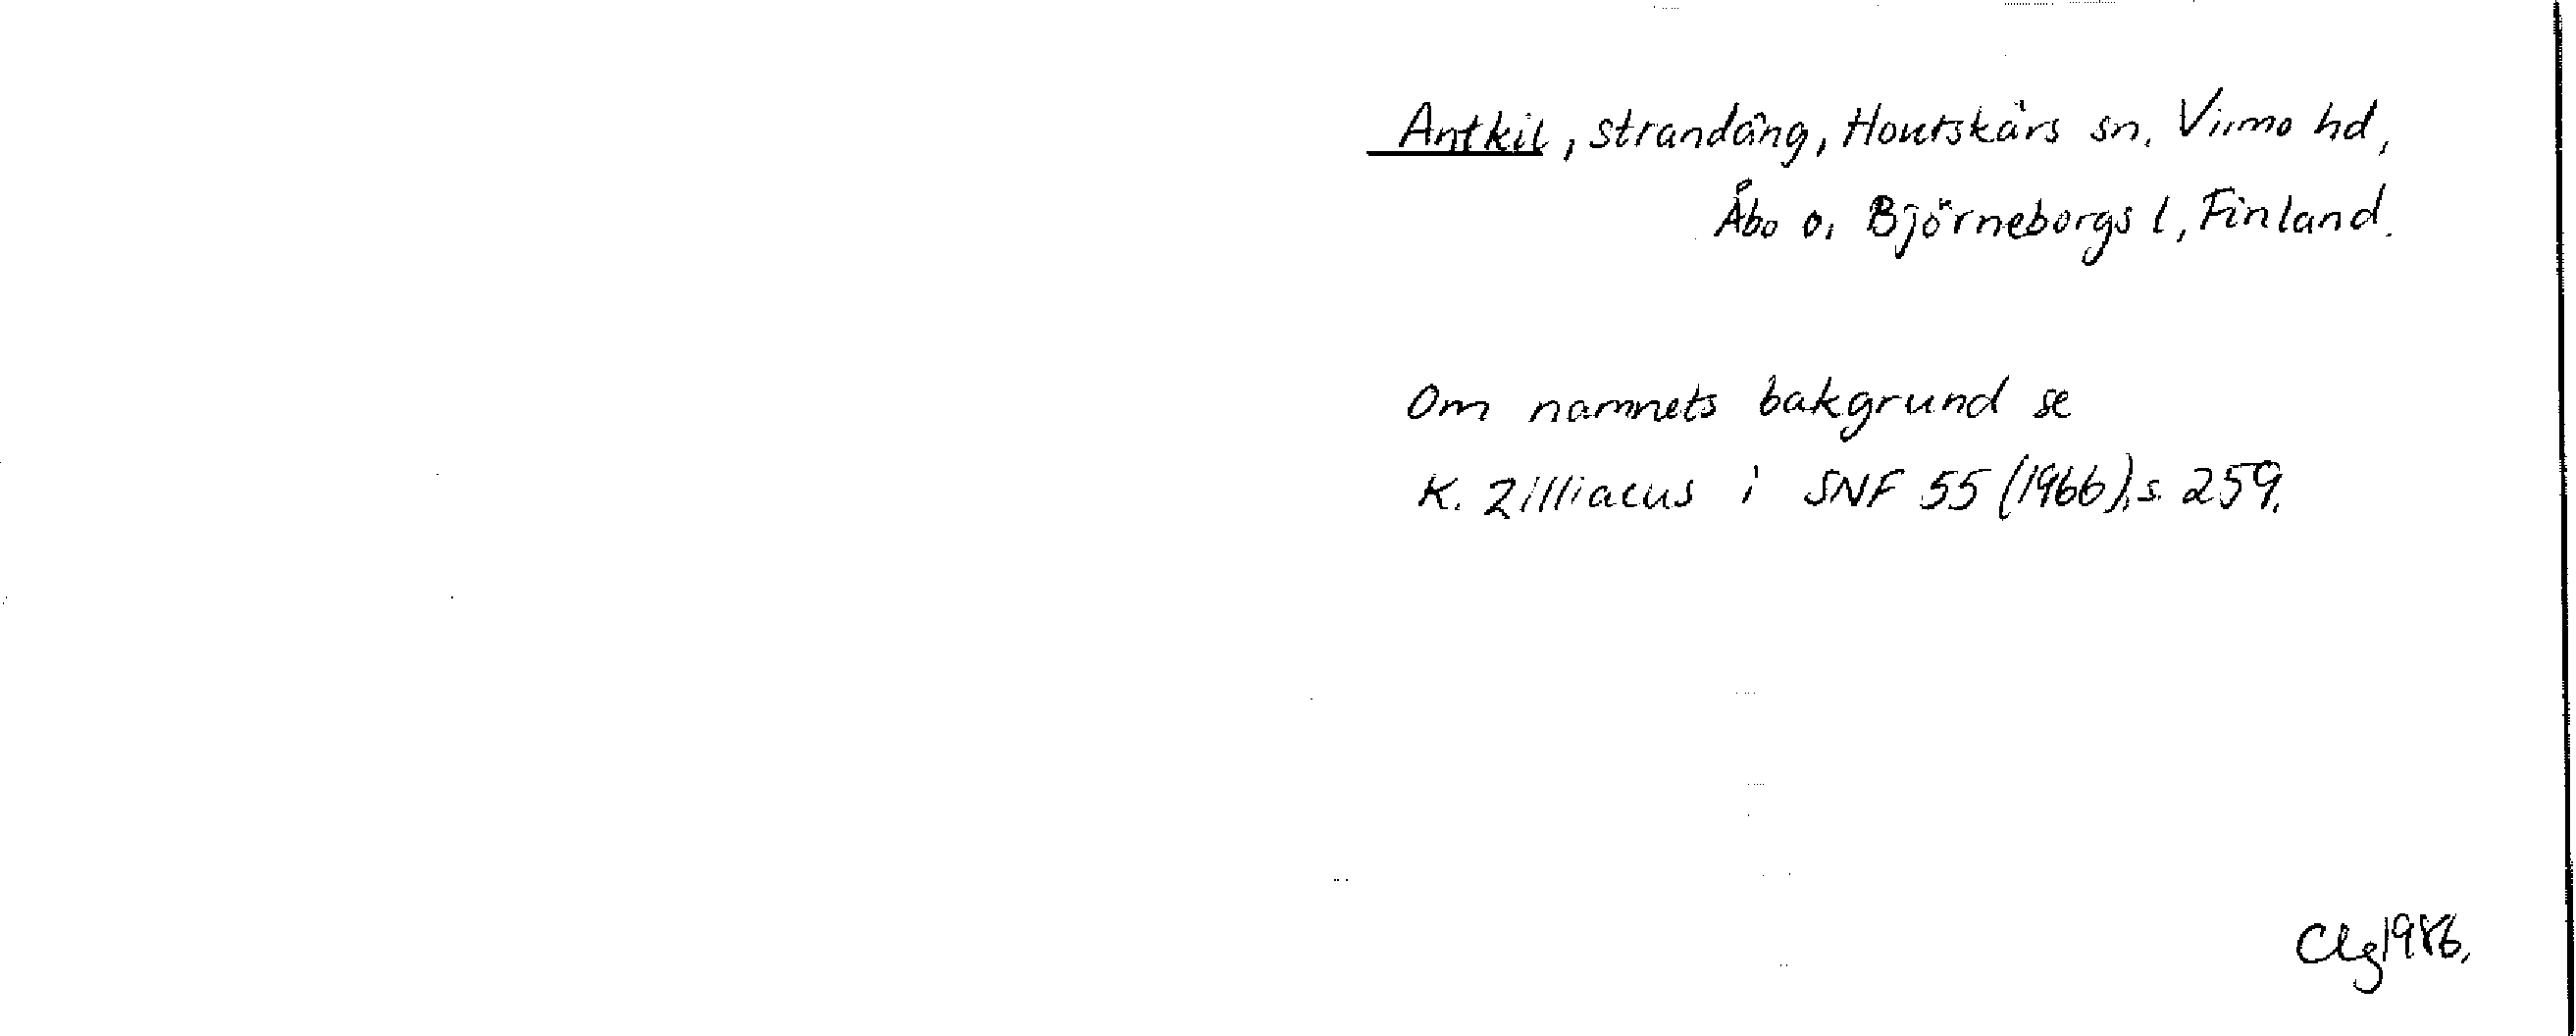 Antkil, strandäng, Houtskärs sn, Virmo hd,
Åbo o. Björneborgs l, Finland.
Om namnets bakgrund se
K. Zilliacus i SNF 55 (1966), s. 259.
Clg 1986.